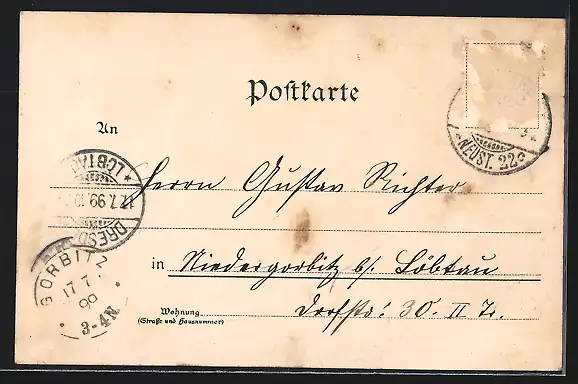 Postkarte
An
Herrn Gustav Richter
in Niedergorbitz b/. Löbtau
Wohnung
(Straße und Hausnummer)
Dorfstr: 30. II
NEUST. 22
* LÖBTAU
17.7.99.
DRESD
GORBITZ
17 7
99
3-4N